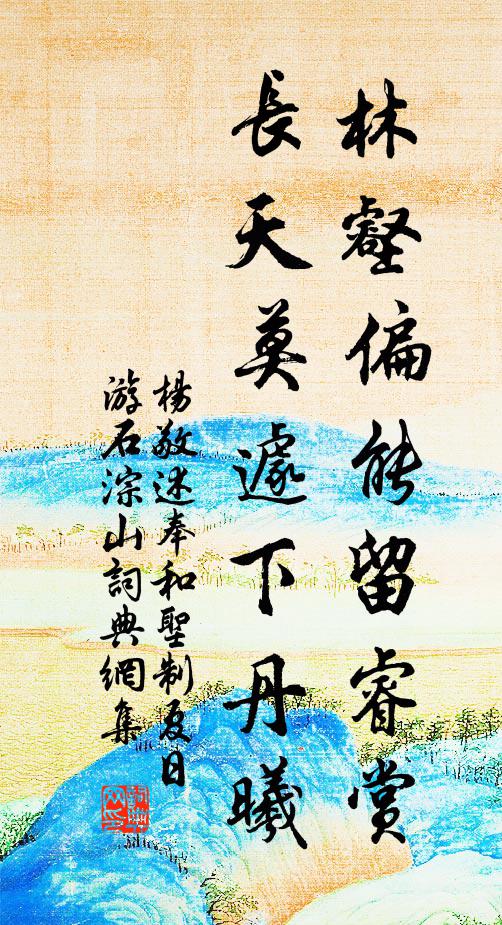 林壑偏能留睿賞
長天莫遽下丹曦
楊敬述奉和聖制夏日
游石淙山詞典網集